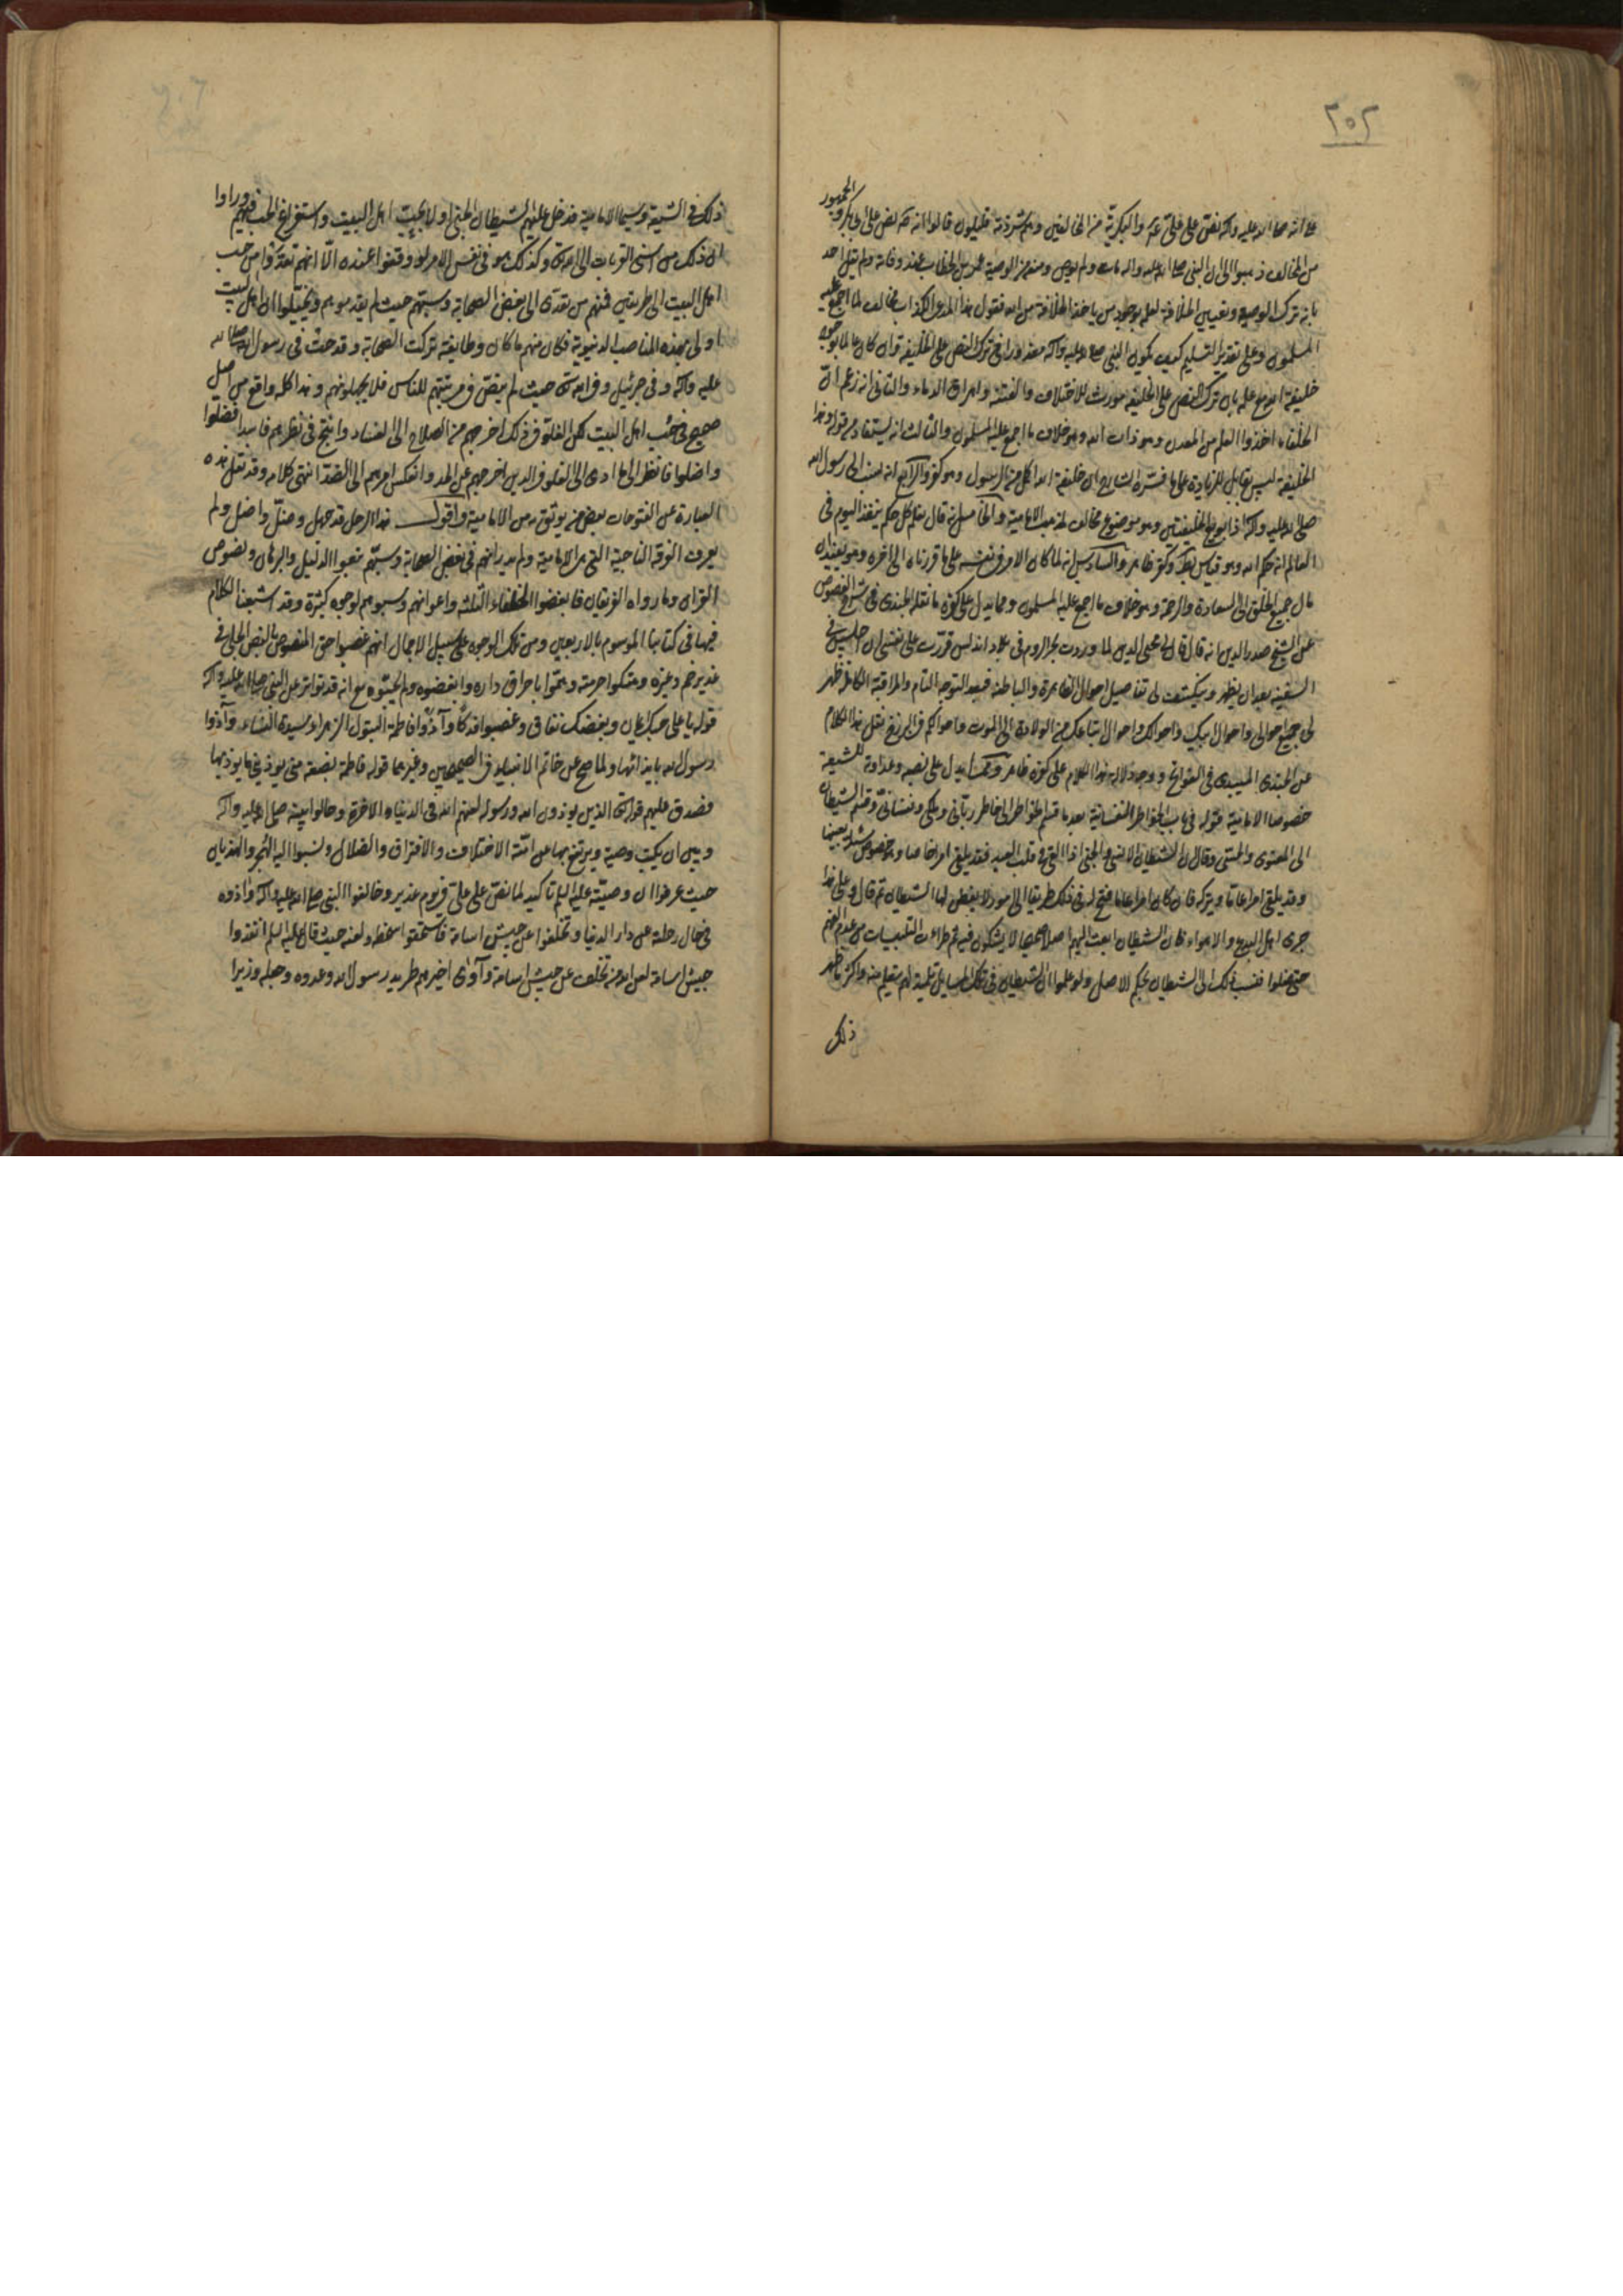 ٢٠٢
الجمهور
على انه صلى الله عليه واله نص على علي عم والبكرية من المخالفين وهم شرذمة قليلون قالوا انه نص على ابي بكر و
من المخالف ذهبوا الى ان النبي صلى الله عليه واله مات ولم يوص ومنعه من الوصية عمر بن الخطاب عند وفاته ولم يقل احد
بانه ترك الوصية وتعيين الخلافة لعلمه بوجود من ياخذ الخلافة من الله فنقول هذا المدعى الكذاب مخالف لما اجمع عليه
المسلمون وعلى تقدير التسليم كيف يكون النبي صلى الله عليه واله معذورا في ترك النص على الخليفة وان كان عالما بوجود
خليفة مع علمه بان ترك النص على الخليفة مورث للاختلاف والفتنة واهراق الدماء والثاني انه زعم ان
الخلفاء اخذوا العلم من المعدن وهو ذات الله وهو خلاف ما اجمع عليه المسلمون والثالث انه يستفاد من قوله وهذا
الخليفة ليس بقابل للزيادة على ما فسره الشارح ان خليفة الله اكمل من الرسول وهو كفر والرابع انه نسب الى رسول الله
صلى الله عليه واله اذا بويع الخليفتين وهو موضوع مخالف لمذهب الامامية والخامس انه قال فعلم كل حكم ينفذ اليوم في
العالم انه حكم الله وهو قياس وكفر ظاهر والسادس انه لما كان الامر في نفسه على ما قررناه الى اخره وهو يفيد ان
مال جميع الخلق الى السعادة والرحمة وهو خلاف ما اجمع عليه المسلمون ومما يدل على كفره ما نقله الجندي في شرح الفصوص
عن الشيخ صدر الدين انه قال قال لي محيي الدين لما وردت بحر الروم في بلاد اندلس قررت على نفسي ان اجلس في
السفينة بعد ان يظهر وينكشف لي تفاصيل احوالي الظاهرة والباطنة فبعد التوجه التام والمراقبة الكاملة ظهر
لي جميع احوالي واحوال ابيك واحوالك واحوال اتباعك من الولادة الى الموت واحوالكم في البرزخ نقل هذا الكلام
عن الجندي الميبدي في الفواتح ووجه دلالة هذا الكلام على كفره ظاهر ومما يدل على نصبه وعداوته للشيعة
خصوصا الامامية قوله في باب الخواطر النفسانية بعد ما قسم الخواطر الى خاطر رباني وملكي ونفساني وقسم الشيطان
الى المعنوي والحسي وقال ان الشيطان الانسي والجني اذا القى في قلب العبد فقد يلقي امرا خاصا وبخصوص مسئلة بعينها
وقد يلقي امرا عاما ويتركه فان كان امرا عاما فتح له في ذلك طريقا الى امور لا يفطن لها الشيطان ثم قال وعلى هذا
جرى اهل البدع والاهواء فان الشيطان القى اليهم اصلا صحيحا لا يشكون فيه ثم طراءت التلبيسات من عدم الفهم
حتى ضلوا فنسب ذلك الى الشيطان بحكم الاصل ولو علموا ان الشيطان في تلك المسايل تلميذ لهم يتعلم منهم واكثر ما ظهر
ذلك
ذلك في الشيعة وسيما الامامية فدخل عليهم الشيطان الجني اولا بحب اهل البيت واستفراغ الحب فيهم وراوا
ان ذلك من اسنى القربات الى الله تعالى وكذلك هو في نفس الامر لو وقفوا عنده الا انهم تعدوا من حب
اهل البيت الى طريقين فمنهم من تعدى الى بغض الصحابة وسبهم حيث لم يقدموهم وتخيلوا ان اهل البيت
اولى بهذه المناصب الدنيوية فكان منهم ما كان وطايفة تركت الصحابة وقدحت في رسول الله صلى الله
عليه واله وفي جبرئيل وفي الله تعالى حيث لم ينص في مرتبتهم للناس فلا يجهلونهم وهذا كله واقع من اصل
صحيح في حب اهل البيت لكن الغلو في ذلك اخرجهم من الصلاح الى الفساد وانتج في نظرهم فاسدا فضلوا
واضلوا فانظر الى ما ادى اليه الغلو في الدين اخرجهم عن الحد وانعكس امرهم الى الضد انتهى كلامه وقد نقل هذه
العبارة عن الفتوحات بعض من يوثق به من الامامية واقول هذا الرجل قد جهل وضل واضل ولم
يعرف الفرقة الناجية التي هي الامامية ولم يدر انهم في بغض الصحابة وسبهم متبعوا الدليل والبرهان ونصوص
القران وما رواه الفريقان فابغضوا الخلفاء الثلثة واعوانهم وسبوهم لوجوه كثيرة وقد اشبعنا الكلام
فيها في كتابنا الموسوم بالاربعين ومن تلك الوجوه على سبيل الاجمال انهم غصبوا حق المنصوص بالنص الجلي في
غدير خم وغيره وهتكوا حرمته وهموا باحراق داره وابغضوه ولم يحبوه مع انه قد تواتر عن النبي صلى الله عليه واله
قوله يا علي حبك ايمان وبغضك نفاق وغصبوا فدكا وآذوا فاطمة البتول الزهراء سيدة النساء وآذوا
رسول الله بايذائها ولما صح عن خاتم الانبياء في الصحيحين وغيرهما قوله فاطمة بضعة مني يوذيني ما يوذيها
فصدق عليهم قوله تعالى الذين يوذون الله ورسوله لعنهم الله في الدنيا والاخرة وحالوا بينه صلى الله عليه واله
وبين ان يكتب وصية ويرتفع بها عن امته الاختلاف والافتراق والضلال ونسبوا اليه الهجر والهذيان
حيث عرفوا ان وصيته عليه السلم تاكيد لما نص على علي في يوم غدير وخالفوا النبي صلى الله عليه واله واذوه
في حال رحلته عن دار الدنيا وتخلفوا عن جيش اسامة فاستحقوا سخطه ولعنه حيث قال عليه السلم انفذوا
جيش اسامة لعن الله من تخلف عن جيش اسامة وآوى اخيرهم طريد رسول الله وعدوه وجعله وزيرا